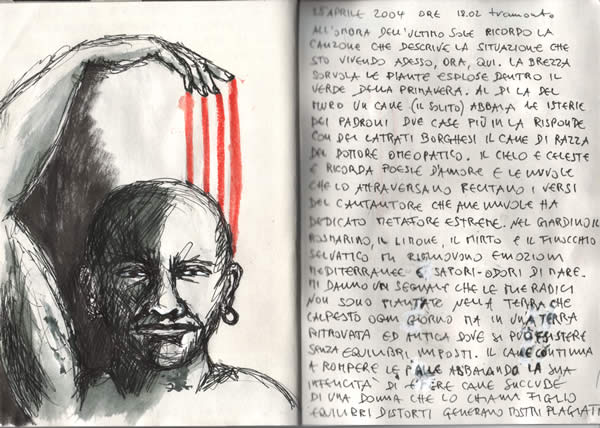 25 APRILE 2004 ORE 18.02 tramonto
ALL'OMBRA DELL'ULTIMO SOLE RICORDO LA
CANZONE CHE DESCRIVE LA SITUAZIONE CHE
STO VIVENDO ADESSO, ORA, QUI. LA BREZZA
SORVOLA LE PIANTE ESPLOSE DENTRO IL
VERDE DELLA PRIMAVERA. AL DI LA DEL
MURO UN CANE (IL SOLITO) ABBAIA LE ISTERIE
DEI PADRONI DUE CASE PIÙ IN LA RISPONDE
CON DEI LATRATI BORGHESI IL CANE DI RAZZA
DEL DOTTORE OMEOPATICO. IL CIELO E CELESTE
E RICORDA POESIE D'AMORE E LE NUVOLE
CHE LO ATTRAVERSANO RECITANO I VERSI
DEL CANTAUTORE CHE ALLE NUVOLE HA
DEDICATO METAFORE ESTREME. NEL GIARDINO IL
ROSMARINO, IL LIMONE, IL MIRTO E IL FINOCCHIO
SELVATICO MI RIMUOVONO EMOZIONI
MEDITERRANEE E SAPORI-ODORI DI MARE.
MI DANNO UN SEGNALE CHE LE MIE RADICI
NON SONO PIANTATE NELLA TERRA CHE
CALPESTO OGNI GIORNO MA IN UNA TERRA
RITROVATA ED ANTICA DOVE SI PUÒ ESISTERE
SENZA EQUILIBRI IMPOSTI. IL CANE CONTINUA
A ROMPERE LE PALLE ABBAIANDO LA SUA
INFELICITÀ DI ESSERE CANE SUCCUBE
DI UNA DONNA CHE LO CHIAMA FIGLIO
EQUILIBRI DISTORTI GENERANO MOSTRI PLAGIATI